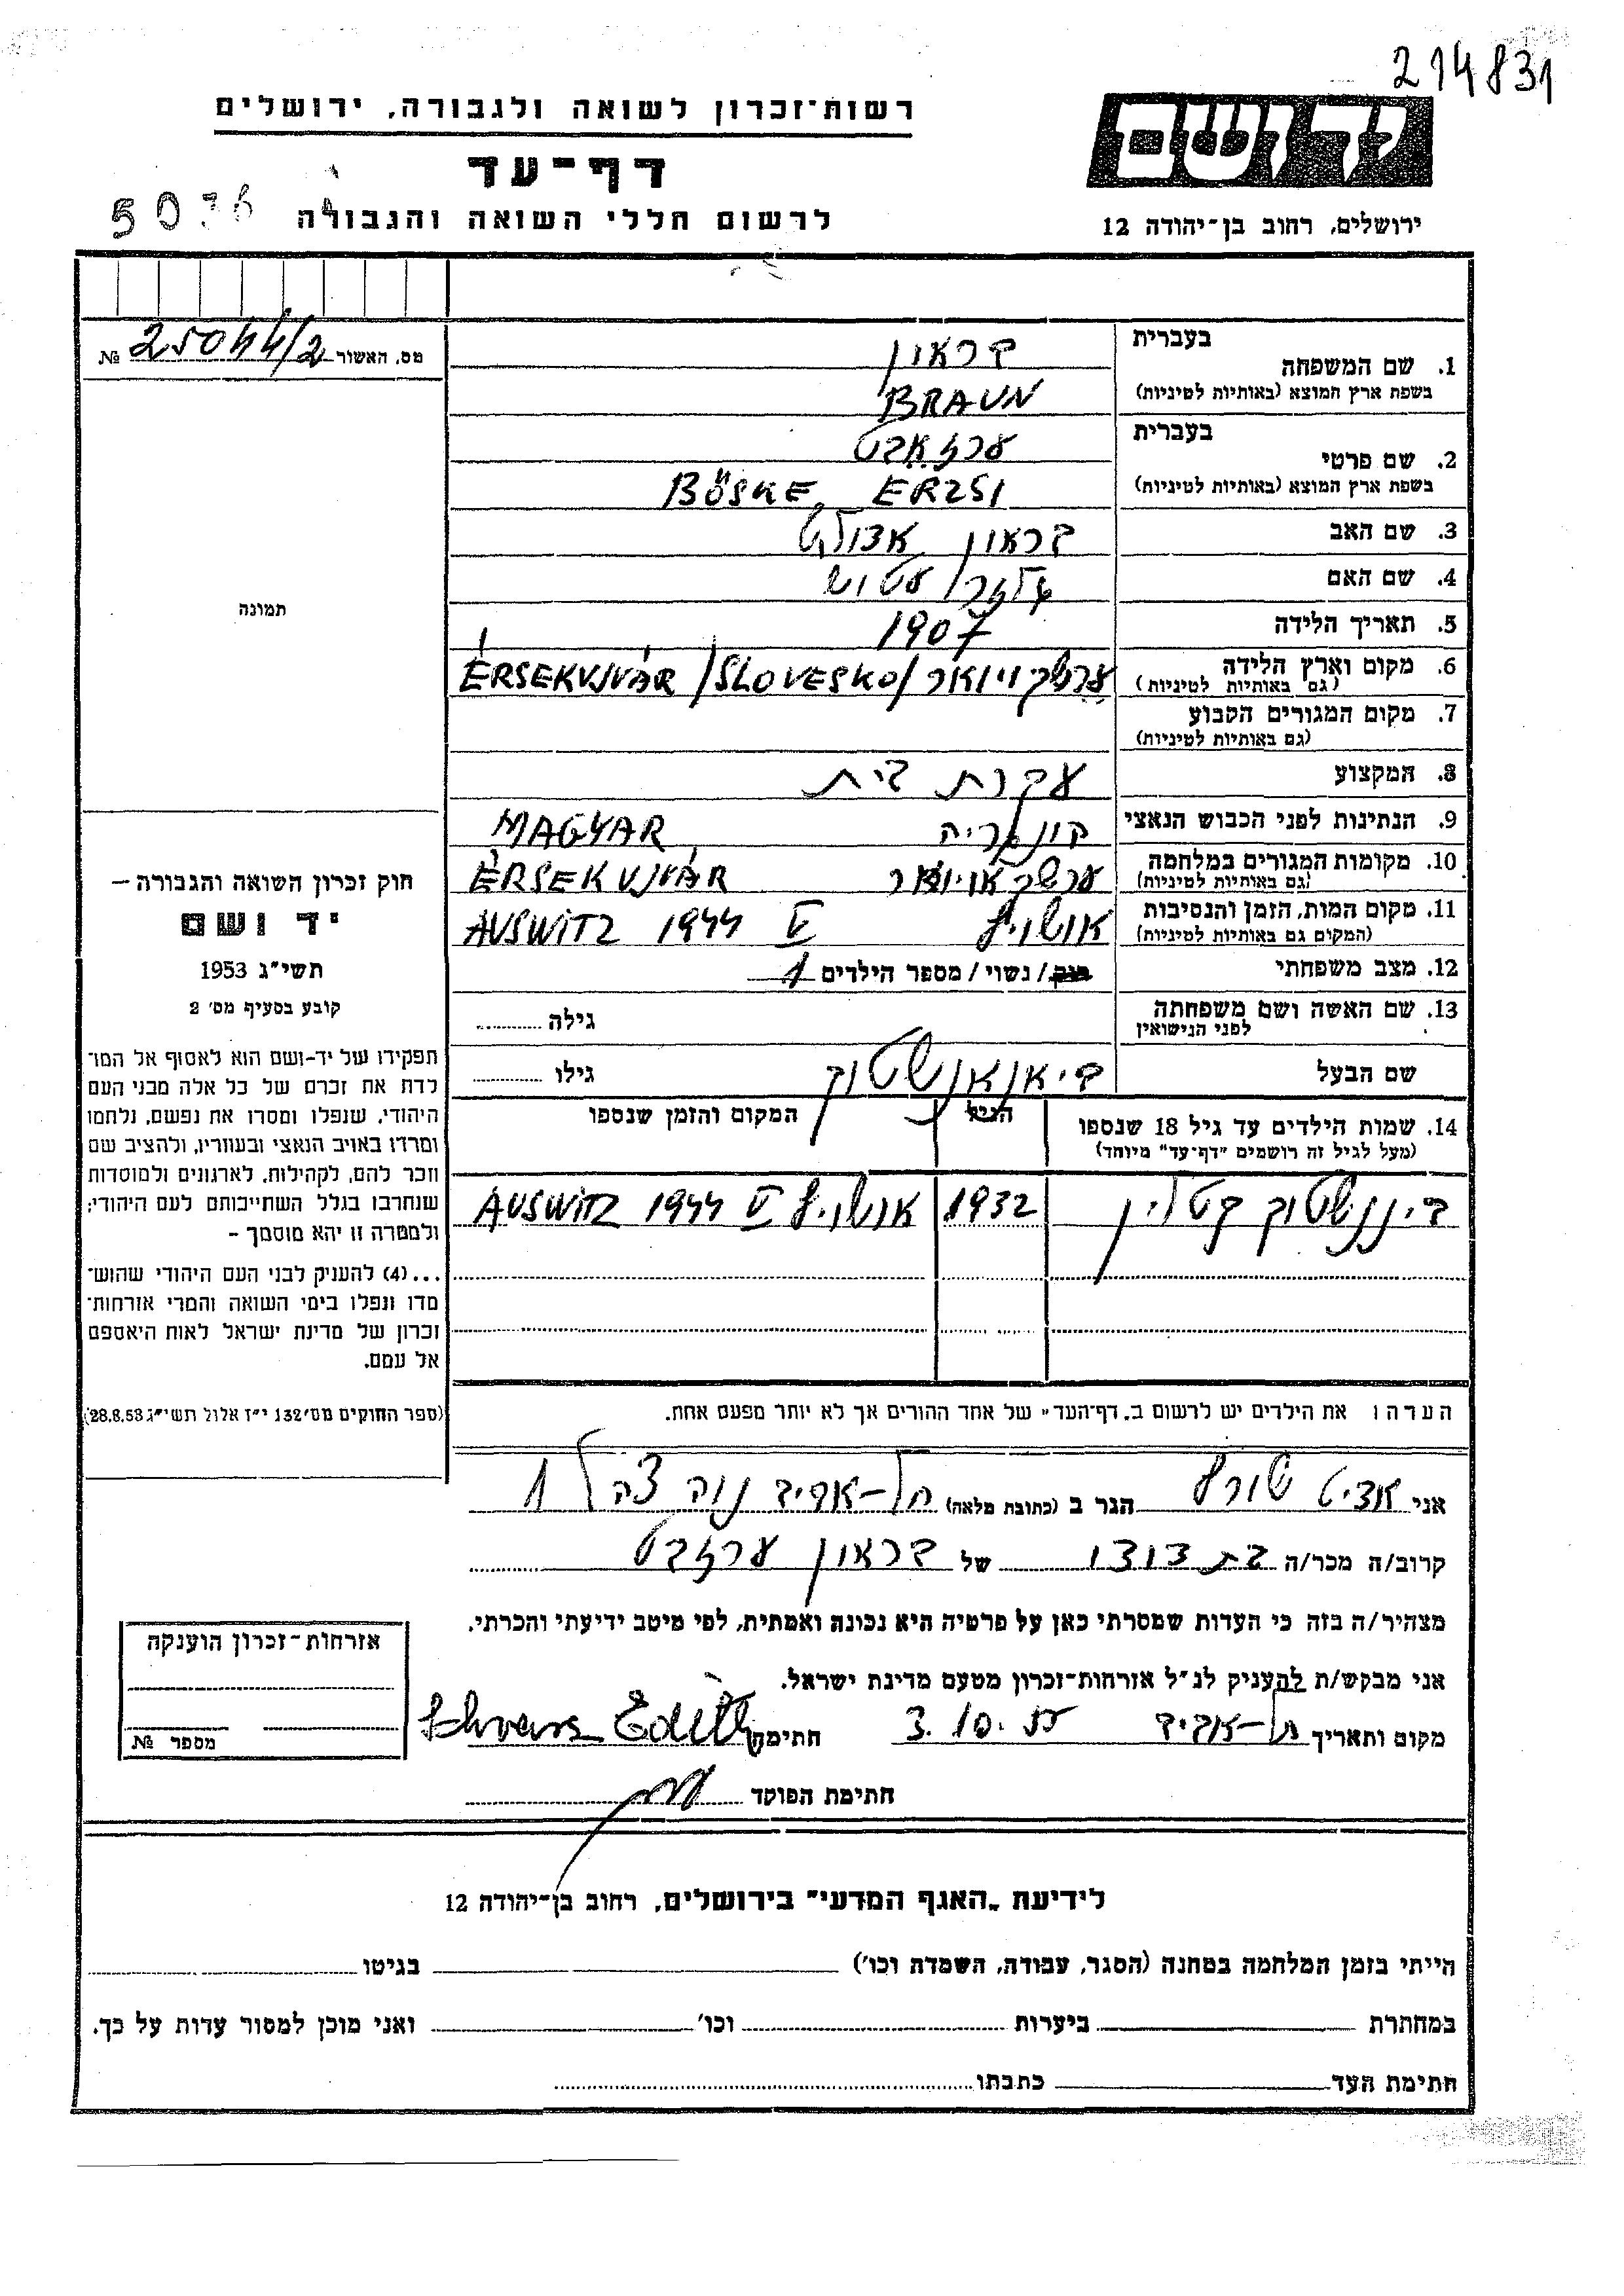 214831
רשות־זכרון לשואה ולגבורה, ירושלים
יד ושם
דף־עד
לרשום חללי השואה והגבורה
ירושלים, רחוב בן־יהודה 12
מס. האשור 25044/2 №
בעברית
1. שם המשפחה בראון
בשפת ארץ המוצא (באותיות לטיניות) BRAUN
בעברית
2. שם פרטי ערזאבט
בשפת ארץ המוצא (באותיות לטיניות) BÖSKE, ERZSI
3. שם האב בראון אדולף
4. שם האם
5. תאריך הלידה 1907
6. מקום וארץ הלידה ÉRSEKUJVÁR /SLOVESKO/
(גם באותיות לטיניות)
7. מקום המגורים הקבוע
(גם באותיות לטיניות)
8. המקצוע עקרת בית
9. הנתינות לפני הכבוש הנאצי הונגריה MAGYAR
10. מקומות המגורים במלחמה ÉRSEKUJVÁR
(גם באותיות לטיניות)
11. מקום המות, הזמן והנסיבות אושויץ AUSWITZ 1944 V
(המקום גם באותיות לטיניות)
12. מצב משפחתי רווק / נשוי / מספר הילדים 1
13. שם האשה ושם משפחתה גילה
לפני הנישואין
שם הבעל גילו
14. שמות הילדים עד גיל 18 שנספו הגיל המקום והזמן שנספו
(מעל לגיל זה רושמים "דף־עד" מיוחד)
קטלין 1932 אושויץ AUSWITZ 1944 V
הערה: את הילדים יש לרשום ב„דף־העד" של אחד ההורים אך לא יותר מפעם אחת.
תמונה
חוק זכרון השואה והגבורה —
יד ושם
תשי"ג 1953
קובע בסעיף מס' 2
תפקידו של יד-ושם הוא לאסוף אל המו־
לדת את זכרם של כל אלה מבני העם
היהודי, שנפלו ומסרו את נפשם, נלחמו
ומרדו באויב הנאצי ובעוזריו, ולהציב שם
וזכר להם, לקהילות, לארגונים ולמוסדות
שנחרבו בגלל השתייכותם לעם היהודי;
ולמטרה זו יהא מוסמך -
...(4) להעניק לבני העם היהודי שהוש־
מדו ונפלו בימי השואה והמרי אזרחות־
זכרון של מדינת ישראל לאות היאספם
אל עמם.
(ספר החוקים מס' 132 י"ז אלול תשי"ג 28.8.53)
אני אדיט שורץ הגר ב (כתובת מלאה) תל-אביב נוה צהל 1
קרוב/ה מכר/ה בת דודו של בראון ערזבט
מצהיר/ה בזה כי העדות שמסרתי כאן על פרטיה היא נכונה ואמתית, לפי מיטב ידיעתי והכרתי.
אני מבקש/ת להעניק לנ"ל אזרחות־זכרון מטעם מדינת ישראל.
מקום ותאריך תל-אביב 3.10.55 חתימה Schvarz Edith
חתימת הפוקד
אזרחות־זכרון הוענקה
מספר №
לידיעת „האגף המדעי" בירושלים, רחוב בן־יהודה 12
הייתי בזמן המלחמה במחנה (הסגר, עבודה, השמדה וכו') בגיטו
במחתרת ביערות וכו' ואני מוכן למסור עדות על כך.
חתימת העד כתבתו